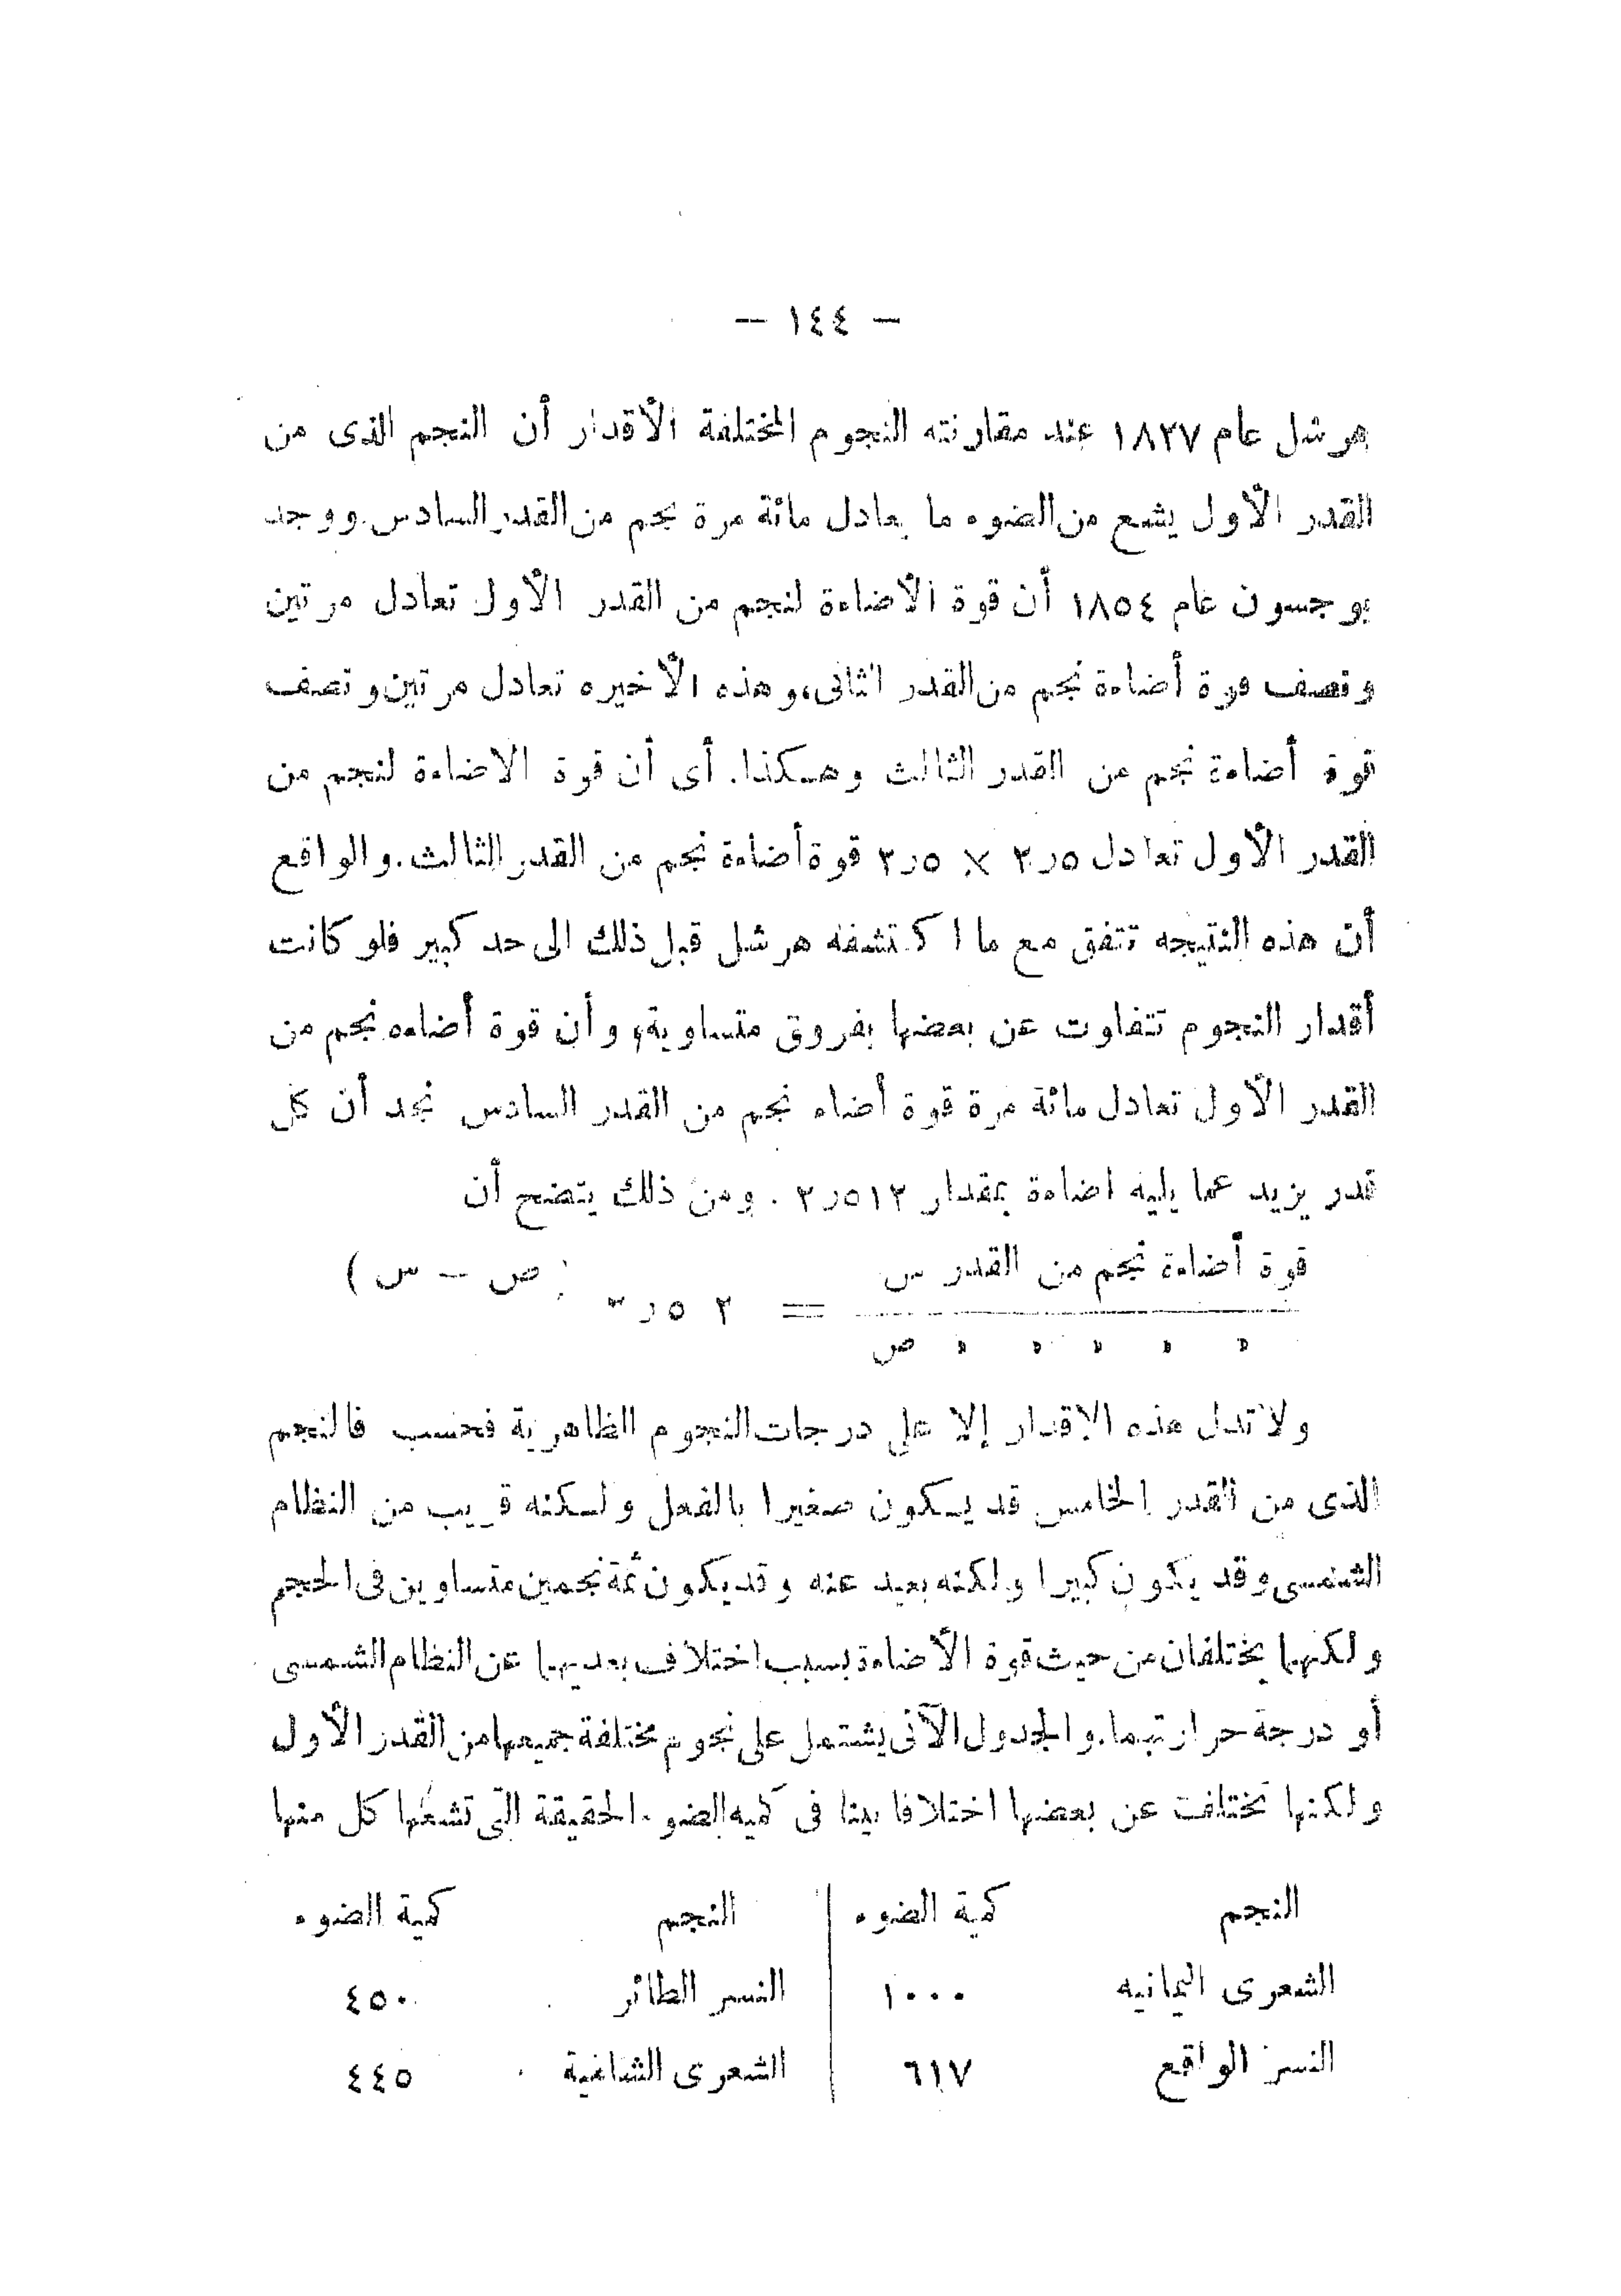 — ١٤٤ —
هرشل عام ١٨٣٧ عند مقارنته النجوم المختلفة الأقدار أن النجم الذى من
القدر الأول يشع من الضوء ما يعادل مائة مرة نجم من القدر السادس. ووجد
بوجسون عام ١٨٥٤ أن قوة الأضاءة لنجم من القدر الأول تعادل مرتين
ونصف قوة أضاءة نجم من القدر الثانى، وهذه الأخيره تعادل مرتين ونصف
قوة أضاءة نجم من القدر الثالث وهكذا. أى أن قوة الاضاءة لنجم من
القدر الأول تعادل ٢٫٥ × ٢٫٥ قوة أضاءة نجم من القدر الثالث. والواقع
أن هذه النتيجه تتفق مع ما اكتشفه هرشل قبل ذلك الى حد كبير فلو كانت
أقدار النجوم تتفاوت عن بعضها بفروق متساوية، وأن قوة أضاءه نجم من
القدر الأول تعادل مائة مرة قوة أضاء نجم من القدر السادس نجد أن كل
قدر يزيد عما يليه اضاءة بمقدار ٢٫٥١٢ . ومن ذلك يتضح أن
قوة أضاءة نجم من القدر س
= ٢ ٥ر (ص — س)
» » » » » ص
ولا تدل هذه الاقدار إلا على درجات النجوم الظاهرية فحسب فالنجم
الذى من القدر الخامس قد يكون صغيرا بالفعل ولكنه قريب من النظام
الشمسى وقد يكون كبيرا ولكنه بعيد عنه وقد يكون ثمة نجمين متساوين فى الحجم
ولكنهما يختلفان من حيث قوة الأضاءة بسبب اختلاف بعديهما عن النظام الشمسى
أو درجة حرارتهما. والجدول الآتى يشتمل على نجوم مختلفة جميعها من القدر الأول
ولكنها تختلف عن بعضها اختلافا بينا فى كميه الضوء الحقيقة التى تشعها كل منها
النجم كمية الضوء النجم كمية الضوء
الشعرى اليمانيه ١٠٠٠ النسر الطائر ٤٥٠
النسر الواقع ٦١٧ الشعرى الشامية ٤٤٥